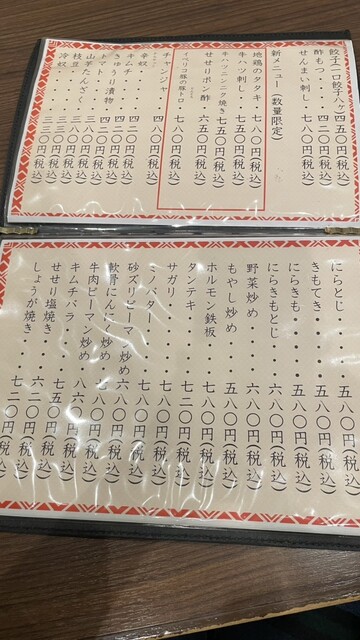 餃子一口餃子八ケ四五〇円(税込)
酢もつ・・・五八〇円(税込)
せんまい刺し・七八〇円(税込)
新メニュー(数量限定)
地鶏のタタキ・七八〇円(税込)
牛ハツ刺し・・七五〇円(税込)
牛ハツニンニク焼き七五〇円(税込)
せせりポン酢・六五〇円(税込)
イベリコ豚の豚トロ・七八〇円(税込)
チャンジャ・・四八〇円(税込)
辛奴・・・・
キムチ・・・・四二〇円(税込)
きゅうり漬物・四二〇円(税込)
トマト・・・・四二〇円(税込)
山芋たんざく・三八〇円(税込)
枝豆・・・・・三三〇円(税込)
冷奴・・・・・三三〇円(税込)
にらとじ・・・・五八〇円(税込)
きもてき・・・・五八〇円(税込)
にらきも・・・・五八〇円(税込)
にらきもとじ・・六八〇円(税込)
野菜炒め・・・・六八〇円(税込)
もやし炒め・・・五八〇円(税込)
ホルモン鉄板・・七八〇円(税込)
タンテキ・・・・七二〇円(税込)
サガリ・・・・・七八〇円(税込)
ミノバター・・・七八〇円(税込)
砂ズリピーマン炒め六八〇円(税込)
軟骨にんにく炒め五八〇円(税込)
牛肉ピーマン炒め七八〇円(税込)
キムチバラ・・・八六〇円(税込)
せせり塩焼き・・七五〇円(税込)
しょうが焼き・・七二〇円(税込)